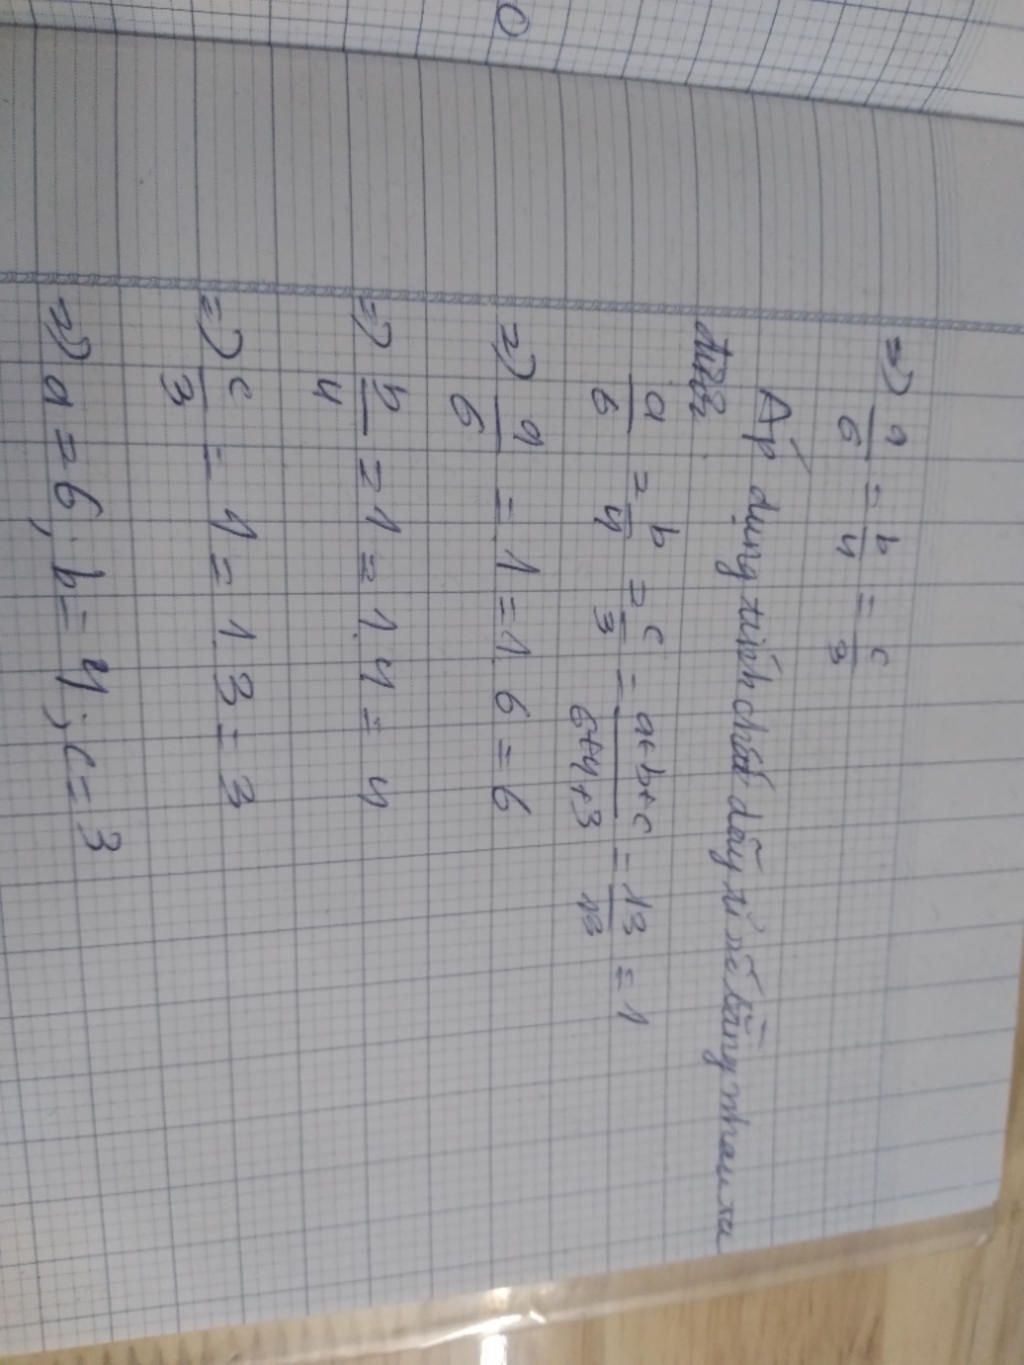 =) a/6 = b/4 = c/3
Áp dụng tính chất dãy tỉ số bằng nhau ta
được
a/6 = b/4 = c/3 = a+b+c/6+4+3 = 13/13 = 1
=) a/6 = 1 = 1.6 = 6
=) b/4 = 1 = 1.4 = 4
=) c/3 = 1 = 1.3 = 3
=) a = 6; b = 4; c = 3